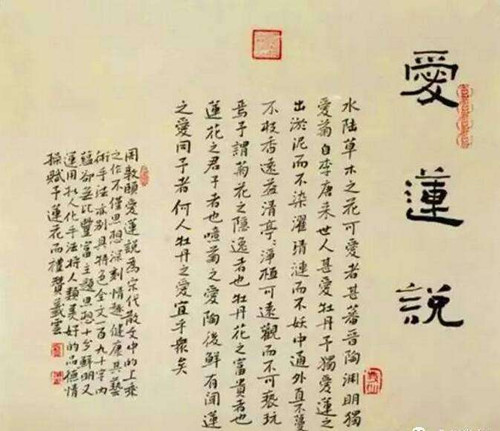 愛蓮說
水陸草木之花可愛者甚蕃晉陶淵明獨
愛菊自李唐来世人甚愛牡丹予獨愛蓮之
出淤泥而不染濯清漣而不妖中通外直不蔓
不枝香遠益清亭〻淨植可遠觀而不可褻玩
焉予謂菊花之隱逸者也牡丹花之富貴者也
蓮花之君子者也噫菊之愛陶後鮮有聞蓮
之愛同予者何人牡丹之愛宜乎眾矣
周敦頤愛蓮說為宋代散文中的上乘
之作不僅思想深刻情趣健康其藝
術手法亦別具特色全文一百九十字内
蕴卻無比豐富主題思想十分鮮明又
運用拟人化手法将人類美好的品德情
操赋予蓮花而禮贊